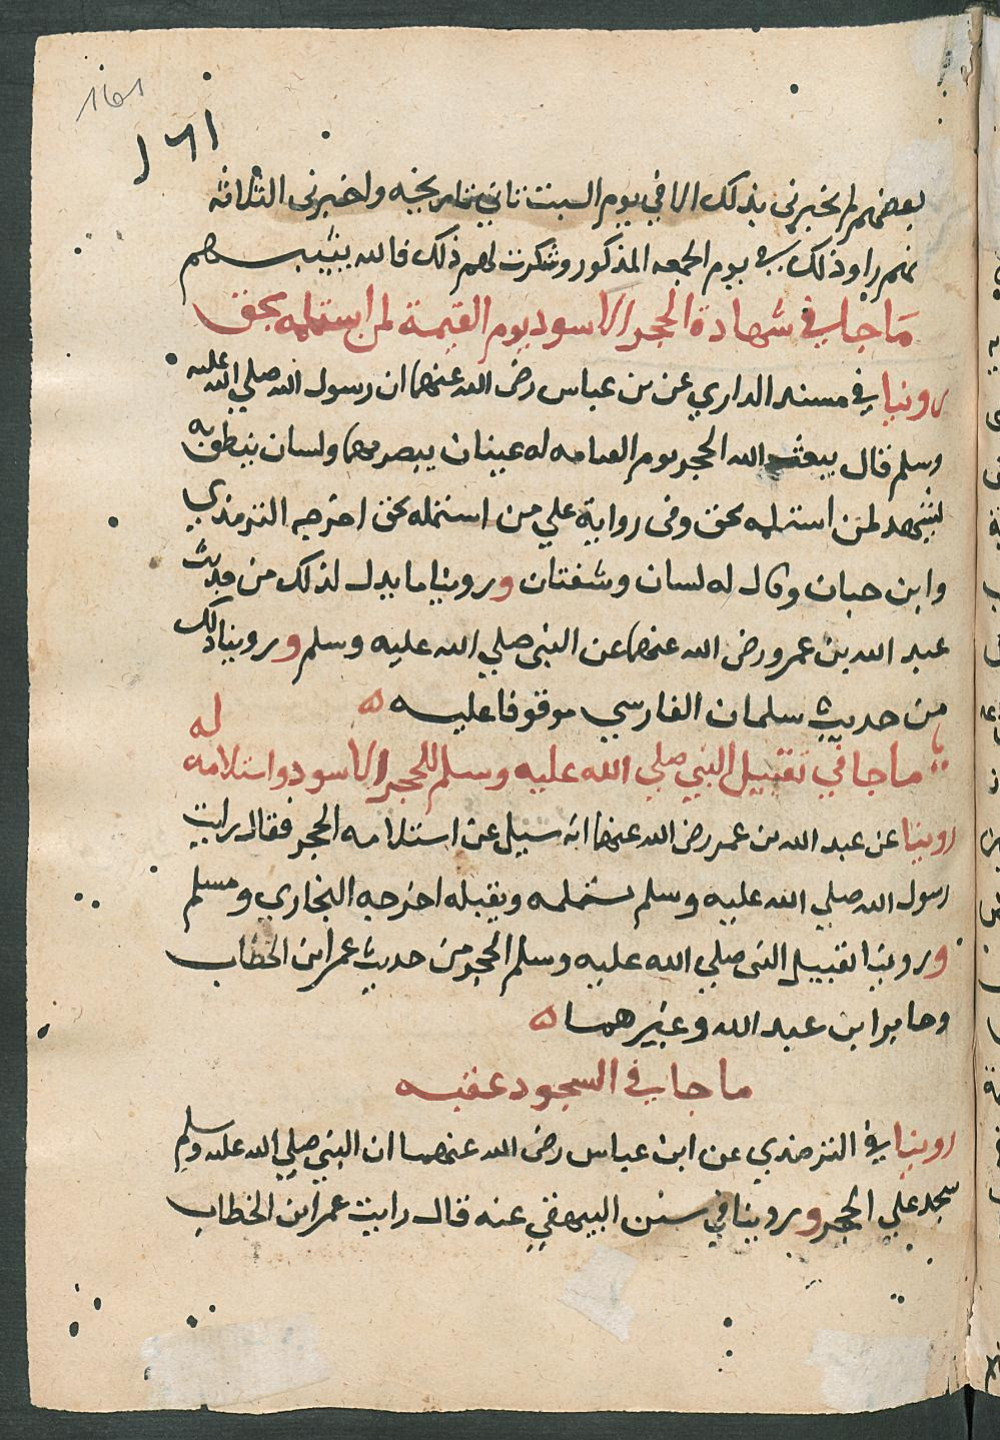 ١٦١
بعضهم لم يخبرني بذلك الا في يوم السبت ثاني تاريخه واخبرني الثلاثة
انهم راوا ذلك في يوم الجمعه المذكور وشكرت لهم ذلك فالله يثيبهم
ما جا في شهادة الحجر الاسود يوم القيمة لمن استلمه بحق
روينا في مسند الدارمي عن بن عباس رضى الله عنهما ان رسول الله صلي الله عليه
وسلم قال يبعث الله الحجر يوم القيامه له عينان يبصر بهما ولسان ينطق به
يشهد لمن استلمه بحق وفى رواية علي من استلمه بحق اخرجه الترمذي
وابن حبان وقال له لسان وشفتان وروينا ما يدل لذلك من حديث
عبد الله بن عمرو رضى الله عنهما عن النبى صلي الله عليه وسلم وروينا ذلك
من حديث سلمان الفارسي موقوفا عليه ه
ما جا في تقبيل النبي صلي الله عليه وسلم للحجر الاسود واستلامه له
روينا عن عبد الله بن عمر رضى الله عنهما انه سيل عن استلامه الحجر فقال رايت
رسول الله صلي الله عليه وسلم يستلمه ويقبله اخرجه البخاري ومسلم
وروينا تقبيل النبى صلي الله عليه وسلم الحجر من حديث عمر ابن الخطاب
وجابر ابن عبد الله وغيرهما ه
ما جا في السجود عقبه
روينا في الترمذي عن ابن عباس رضى الله عنهما ان النبي صلي الله عليه وسلم
سجد علي الحجر وروينا في سنن البيهقي عنه قال رايت عمر ابن الخطاب